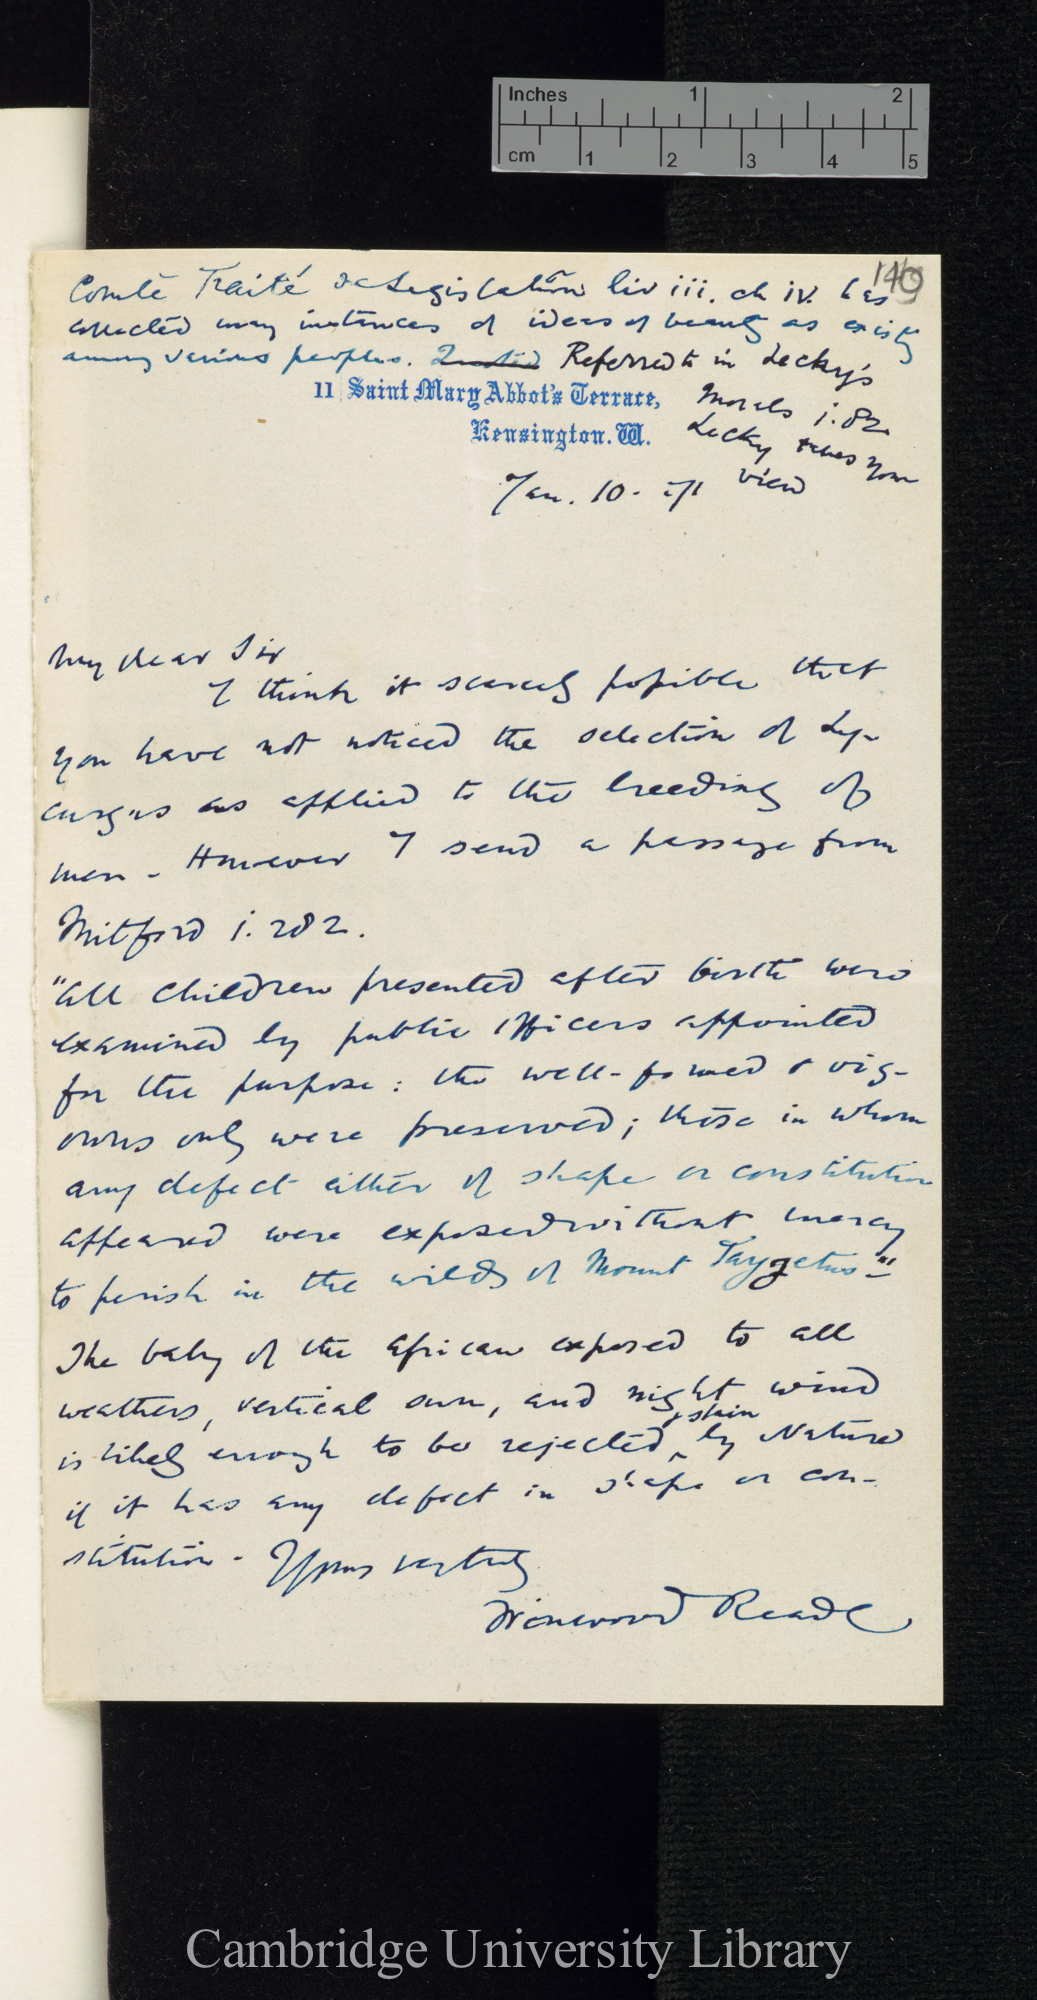 Inches 1 2
cm 1 2 3 4 5
140
Comte Traité de Legislation liv iii. ch iv. has
collected many instances of ideas of beauty as existg
among various peoples. Quoted Referred to in Lecky's
Morals i. 82
Lecky takes your
view
11 Saint Mary Abbot's Terrace,
Kensington. W.
Jan. 10 - 71
My dear Sir
I think it scarcely possible that
you have not noticed the selection of Ly-
curgus as applied to the breeding of
men - However I send a passage from
Mitford i. 282.
"All children presented after birth were
examined by public officers appointed
for the purpose: the well-formed & vig-
orous only were preserved; those in whom
any defect either of shape or constitution
appeared were exposed without mercy
to perish in the wilds of Mount Taygetus"-
The baby of the African exposed to all
weathers, vertical sun, and night wind
is likely enough to be rejected, & slain by Nature
if it has any defect in shape or con-
stitution - Yours very truly
Winwood Reade
Cambridge University Library